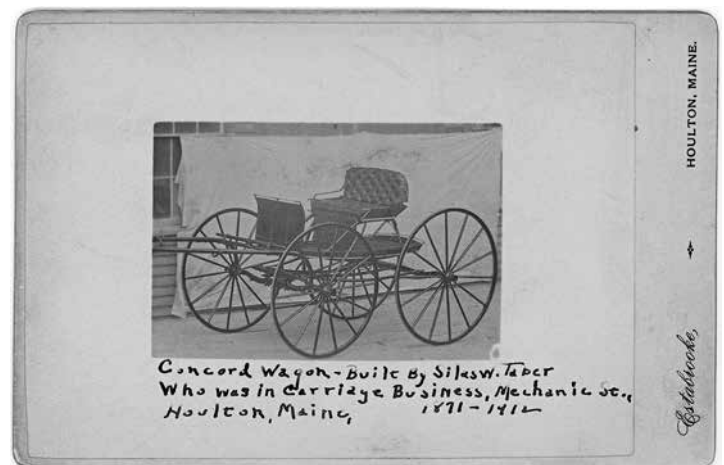 Concord Wagon - Built By Silas W. Taber
Who was in Carriage Business, Mechanic St.,
Houlton, Maine, 1871-1912
Estabrooke,
HOULTON, MAINE.